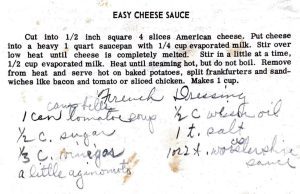 EASY CHEESE SAUCE
Cut into 1/2 inch square 4 slices American cheese. Put cheese
into a heavy 1 quart saucepan with 1/4 cup evaporated milk. Stir over
low heat until cheese is completely melted. Stir in a little at a time,
1/2 cup evaporated milk. Heat until steaming hot, but do not boil. Remove
from heat and serve hot on baked potatoes, split frankfurters and sand-
wiches like bacon and tomato or sliced chicken. Makes 1 cup.
French Dressing
campbells
1 can tomato soup
1/2 C. sugar
1/3 C. vinegar
a little
1/2 C wesson oil
1 t. salt
1 or 2 t.
sauce